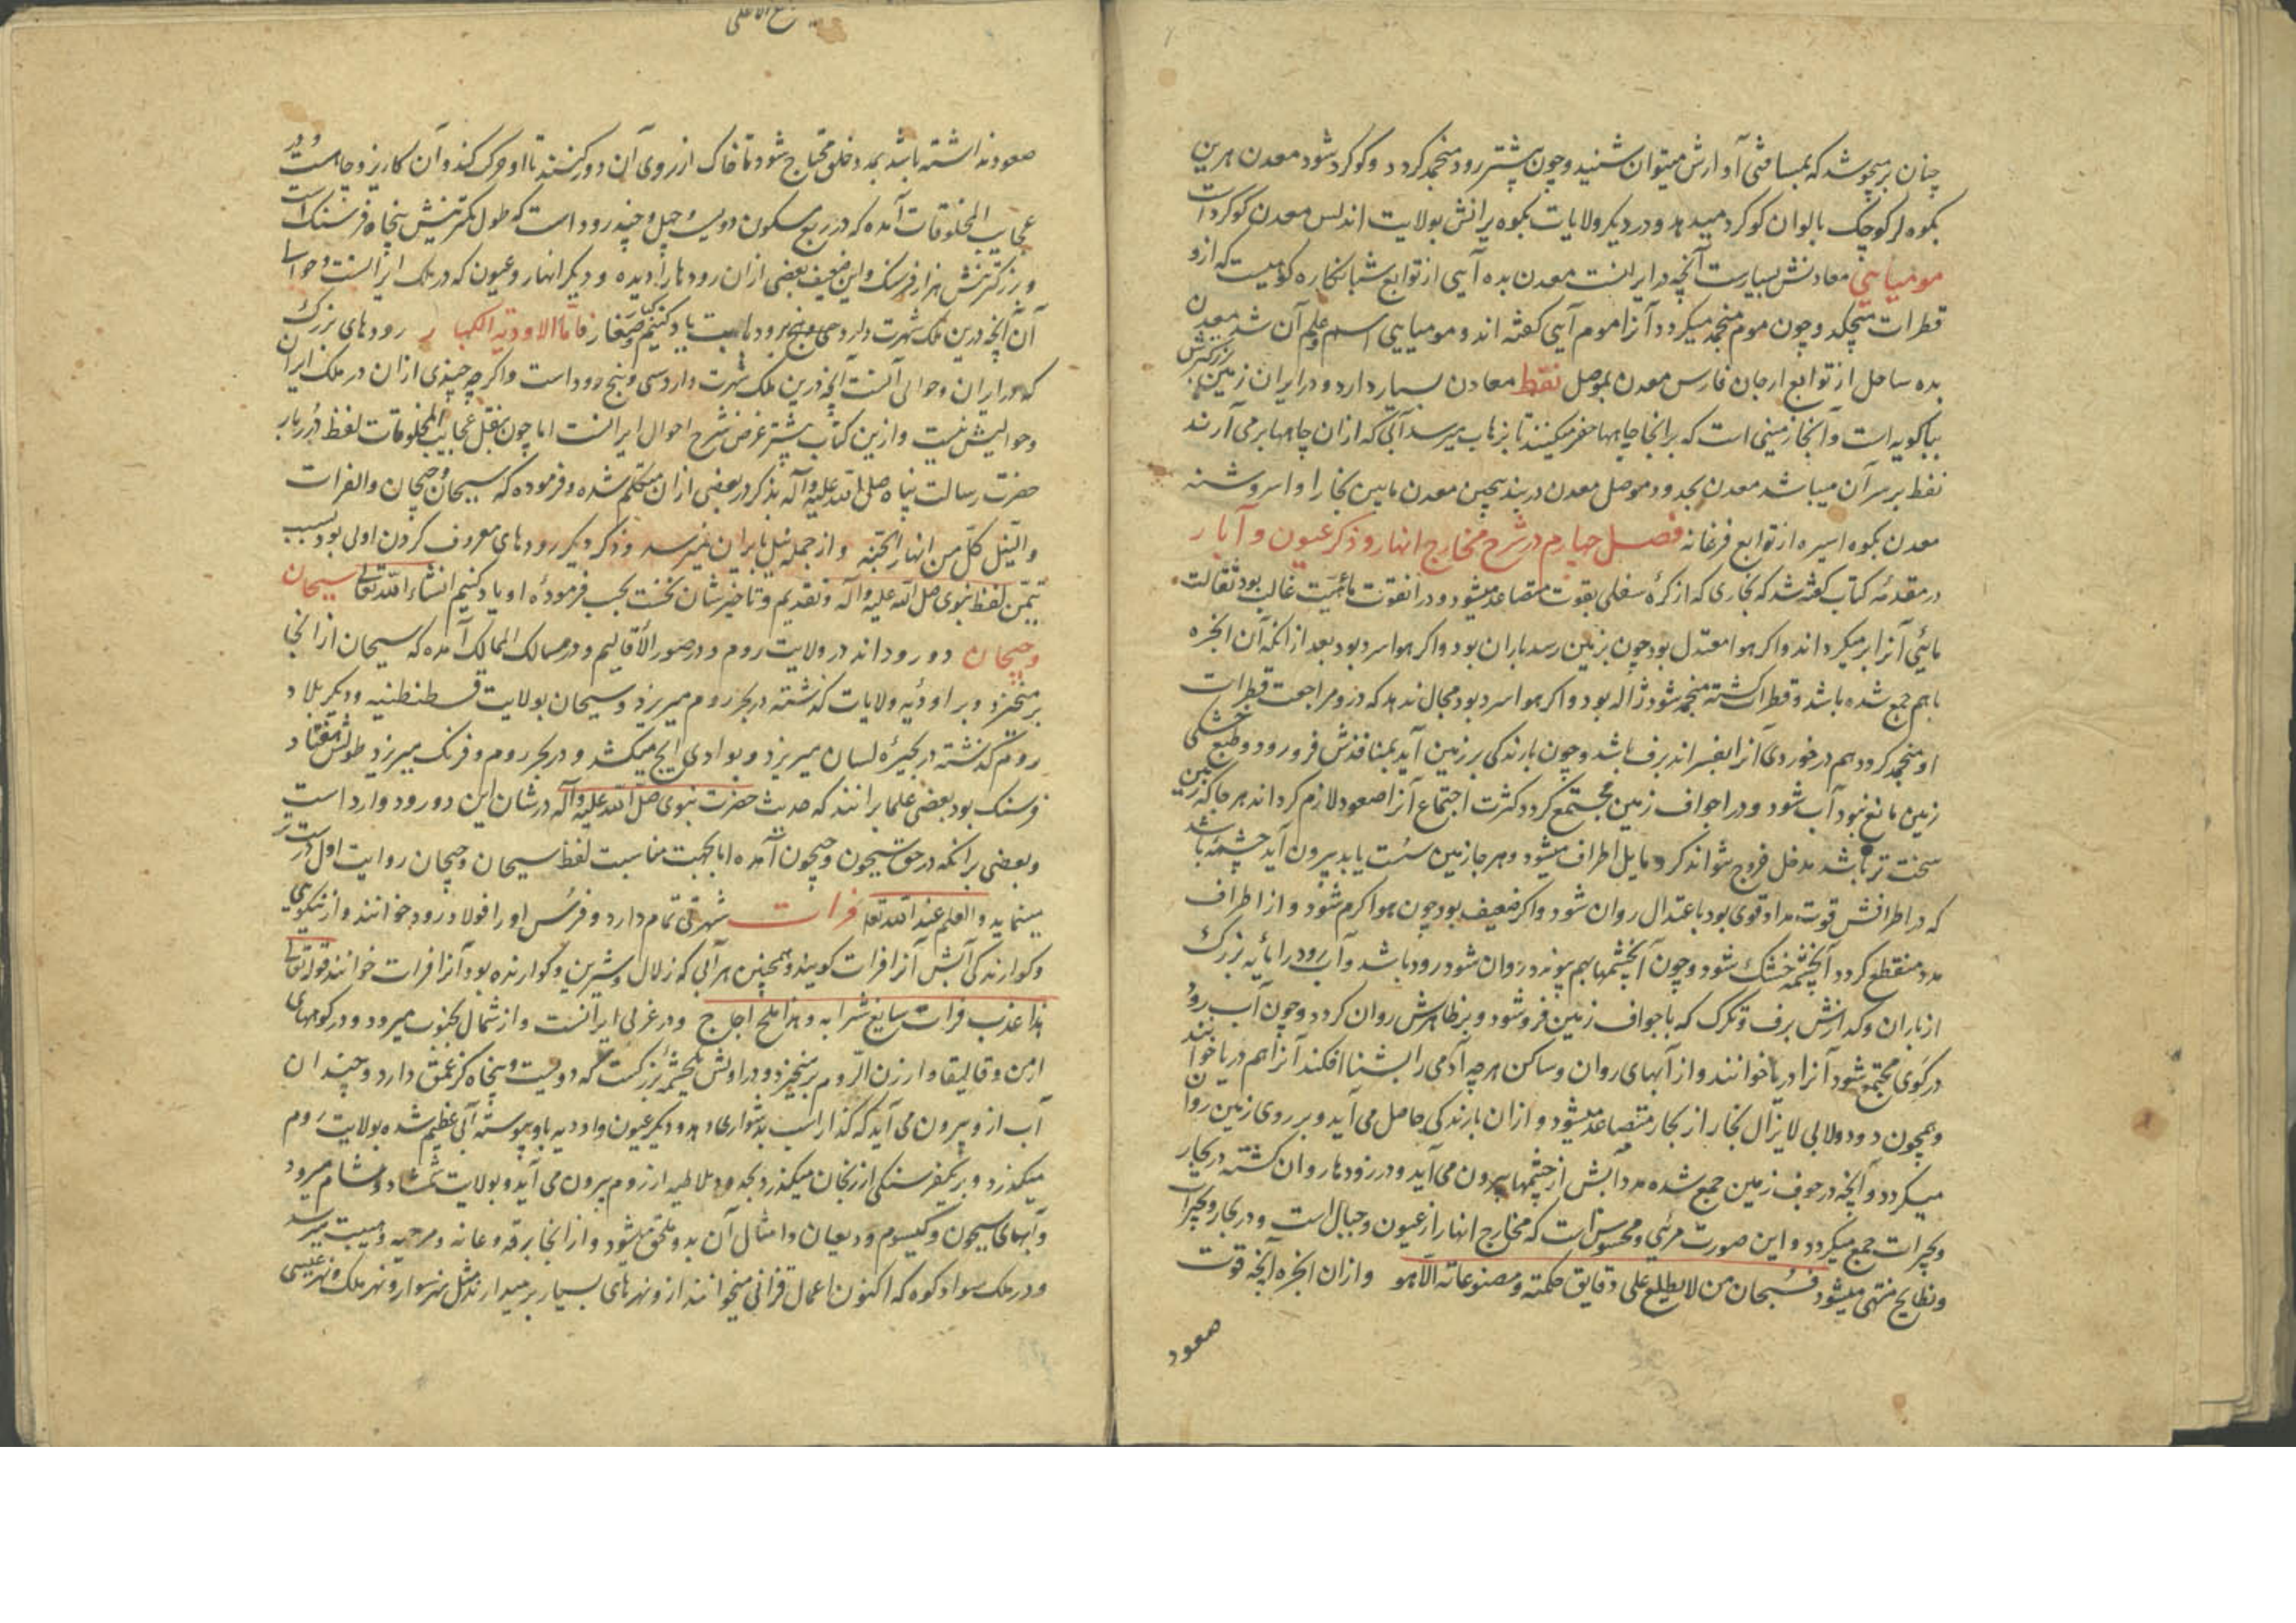 چنان برمیجوشد که بمسافتی آوازش میتوان شنید و چون پیشتر رود منجمد گردد و گوگرد شود معدن هرین
بکوه لر کوچک بالوان گوگرد میدهد و در دیگر ولایات بکوه پرانش بولایت اندلس معدن گوگرد است
مومیایی معادنش بسیارست آنچه در ایرانست معدن بده آیی از توابع شبانکاره کوهیست که ازو
قطرات میچکد و چون موم منجمد میگردد آنرا موم آیی گفته اند و مومیایی اسم علم آن شد معدن
بده ساحل از توابع ارجان فارس معدن بموصل نفط معادن بسیار دارد و در ایران زمین بزرگترش
بباکویه است و آنجا زمینی است که برانجا چاهها حفر میکنند تا بزهاب میرسد آبی که ازان چاهها برمی آرند
نفط بر سر آن میباشد معدن بحدود موصل معدن دربند بچین معدن مابین بخارا و اسروشنه
معدن بکوه اسپره از توابع فرغانه فصل چهارم در شرح مخارج انهار و ذکر عیون و آبار
در مقدمه کتاب گفته شد که بخاری که از کره سفلی بقوت متصاعد میشود و در انقوت مائیت غالب بود ثقالت
مائی آنرا ابر میگرداند و اگر هوا معتدل بود چون بزمین رسد باران بود و اگر هوا سرد بود بعد از انکه آن ابخره
باهم جمع شده باشد و قطرات گشته منجمد شود ژاله بود و اگر هوا سرد بود مجال ندهد که در و مراجعت قطرات
او منجمد گردد هم در خوردی آنرا بفسراند برف باشد و چون بارندگی بر زمین آید بمنافذش فرو رود و طبع خشکی
زمین مانع نبود آب شود و در اجواف زمین مجتمع گردد کثرت اجتماع آنرا صعود لازم گرداند هر جا که زمین
سخت تر باشد مدخل خروج نتواند کرد مایل اطراف میشود و هر جا زمین سست یابد بیرون آید چشمه باشد
که در اطرافش قوت مداد قوی بود باعتدال روان شود و اگر ضعیف بود چون هوا گرم شود و از اطراف
مدد منقطع گردد آن چشمه خشک شود و چون آن چشمها بهم پیوندد و روان شود رود باشد و آب رود را مایه بزرگ
از باران و گدازش برف و تگرگ که باجواف زمین فرو شود و بر ظاهرش روان گردد و چون آب رود
در گوی مجتمع شود آنرا دریا خوانند و از آبهای روان و ساکن هر چه آدمی را بشنا افکند آنرا هم دریا خوانند
و همچون دور دولابی لا یزال بخار از بحار متصاعد میشود و ازان بارندگی حاصل می آید و بر روی زمین روان
میگردد و آنچه در جوف زمین جمع شده مدد آبش از چشمها بیرون می آید و در رودها روان گشته در بحار
و بحیرات جمع میگردد و این صورت مرئی و محسوس است که مخارج انهار از عیون و جبال است و در بحار و بحیرات
و بطایح منتهی میشود فسبحان من لا یطلع علی دقایق حکمته و مصنوعاته الا هو و ازان ابخره آنچه قوت
صعود
صعود نداشته باشد بمدد خلق محتاج شود تا خاک از روی آن دور کنند تا او حرکت کند و آن کاریز و چاهست و در
عجایب المخلوقات آمده که در ربع مسکون دویست و چهل و چند رود است که طول کمترینش پنجاه فرسنک است
و بزرگترینش هزار فرسنک و این ضعیف بعضی ازان رودها را دیده و دیگر انهار و عیون که در ملک ایرانست و حوالی
آن آنچه درین ملک شهرت دارد سی و پنج رود است یاد کنیم کبار و صغار فاما الاودیة الکبار رودهای بزرک
که در ایران و حوالی آنست آنچه درین ملک شهرت دارد سی و پنج رود است و اگر چه چیزی ازان در ملک ایران
و حوالیش نیست و ازین کتاب بیشتر غرض شرح احوال ایرانست اما چون بنقل عجایب المخلوقات لفظ درربار
حضرت رسالت پناه صلی الله علیه و آله بذکر در بعضی ازان متکلم شده و فرموده که سیحان و جیحان و الفرات
و النیل کل من انهار الجنة و از جمله نیل بایران نمیرسد و ذکر دیگر رودهای معروف کردن اولی بود بسبب
تیمن لفظ نبوی صلی الله علیه و آله و تقدیم و تاخیرشان نخست بحسب فرموده او یاد کنیم انشاء الله تعالی سیحان
و جیحان دو رود اند در ولایت روم و در صور الاقالیم و در مسالک الممالک آمده که سیحان از انجا
برمیخیزد و بر اودیه ولایات گذشته در بحر روم میریزد و سیحان بولایت قسطنطنیه و دیگر بلاد
روم گذشته در بحیره لسان میریزد و بوادی ایج میکشد و در بحر روم و فرنک میریزد طولش هفتاد
فرسنک بود بعضی علما برانند که حدیث حضرت نبوی صلی الله علیه و آله در شان این دو رود وارد است
و بعضی برانکه در حق سیحون و جیحون آمده اما بجهت مناسبت لفظ سیحان و جیحان روایت اول درست تر
مینماید و العلم عند الله تعالی فرات شهرتی تمام دارد و فرس او را فولاد رود خوانند و از نیکویی
و گوارندگی آبش آنرا فرات گویند و همچنین هر آبی که زلال و شیرین و گوارنده بود آنرا فرات خوانند قوله تعالی
هذا عذب فرات سایغ شرابه و هذا ملح اجاج و در غربی ایرانست و از شمال بجنوب میرود و در کوههای
ارمن و قالیقلا و ارزن الروم برمیخیزد و در اولش چشمه بزرگست که دویست و پنجاه گز عمق دارد و چندان
آب ازو بیرون می آید که گذار اسب بدشواری دهد و دیگر عیون و اودیه باو پیوسته آبی عظیم شده بولایت روم
میگذرد و بر یکفرسنگی ارزنجان میگذرد بحدود ملاطیه از روم بیرون می آید و بولایت شمشاد و شام میرود
و آبهای سیحون و کیسوم و دیصان و امثال آن بدو ملحق میشود و از انجا برقه و عانه و رحبه و هیت میرسد
و در ملک سواد کوه که اکنون اعمال فراتی میخوانند ازو نهرهای بسیار برمیدارند مثل نهر سوار و نهر ملک و نهر عیسی